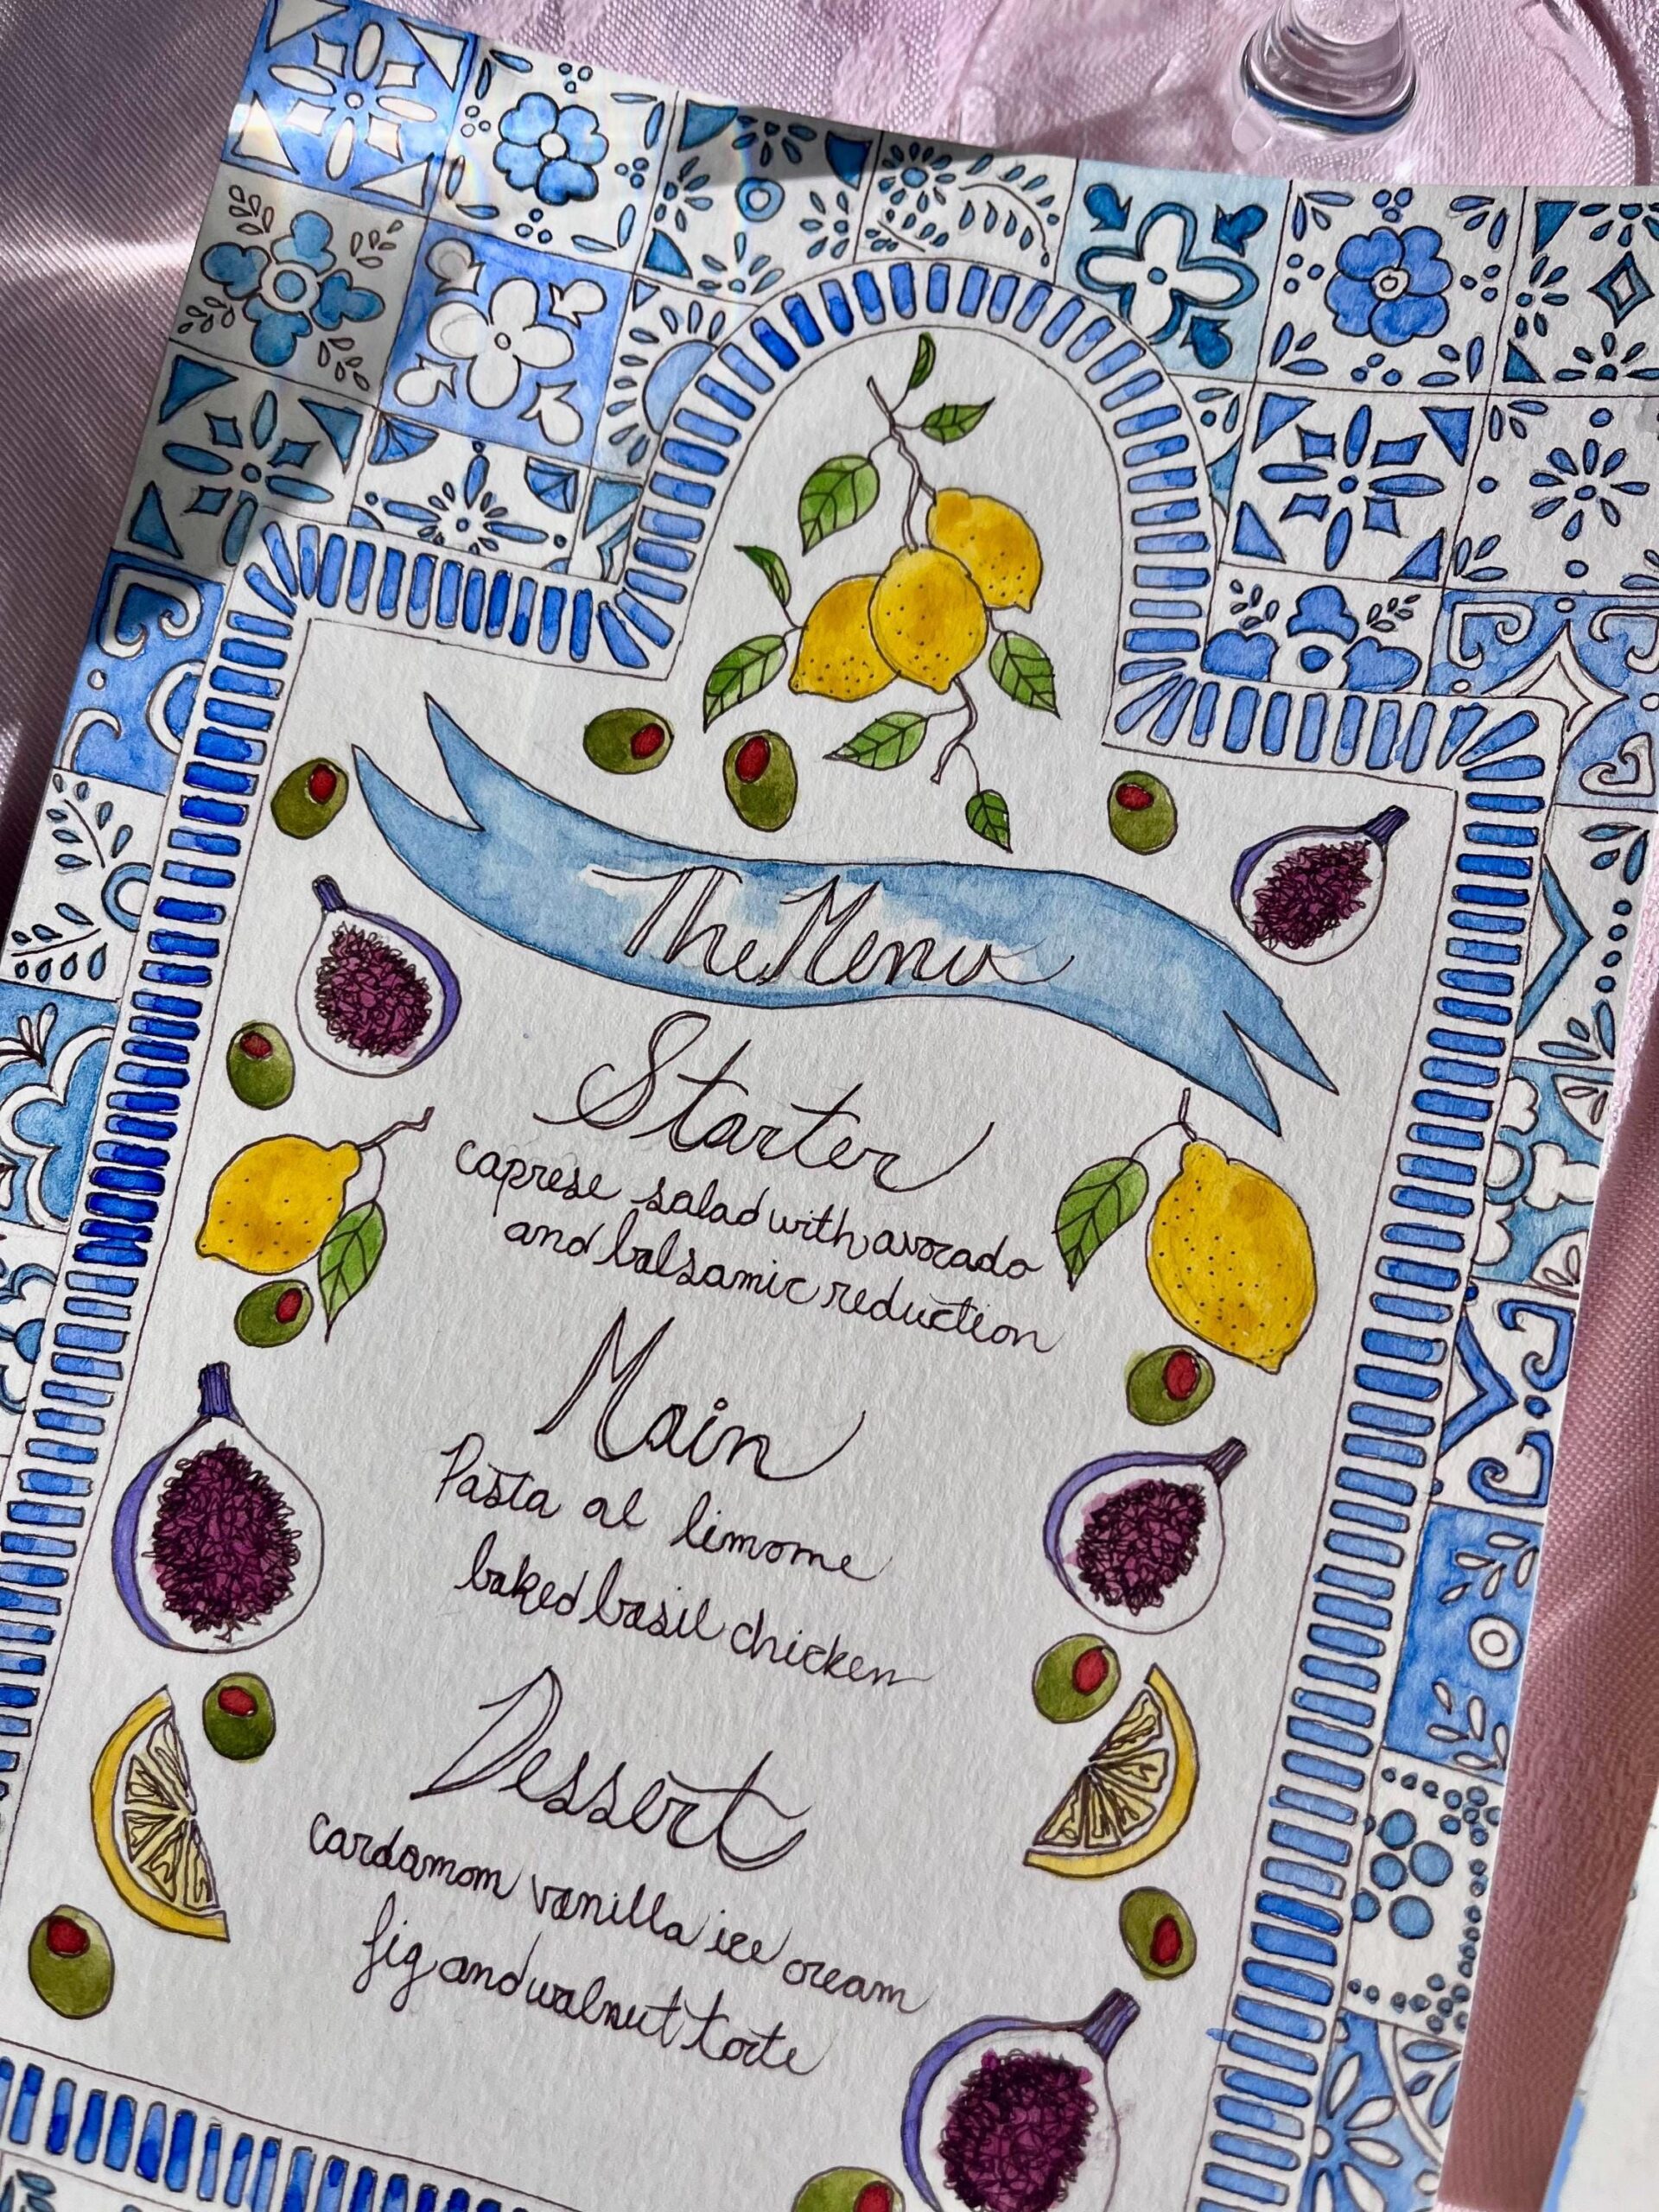 The Menu
Starter
caprese salad with avocado
and balsamic reduction
Main
Pasta al limome
baked basil chicken
Dessert
cardamom vanilla ice cream
fig and walnut torte